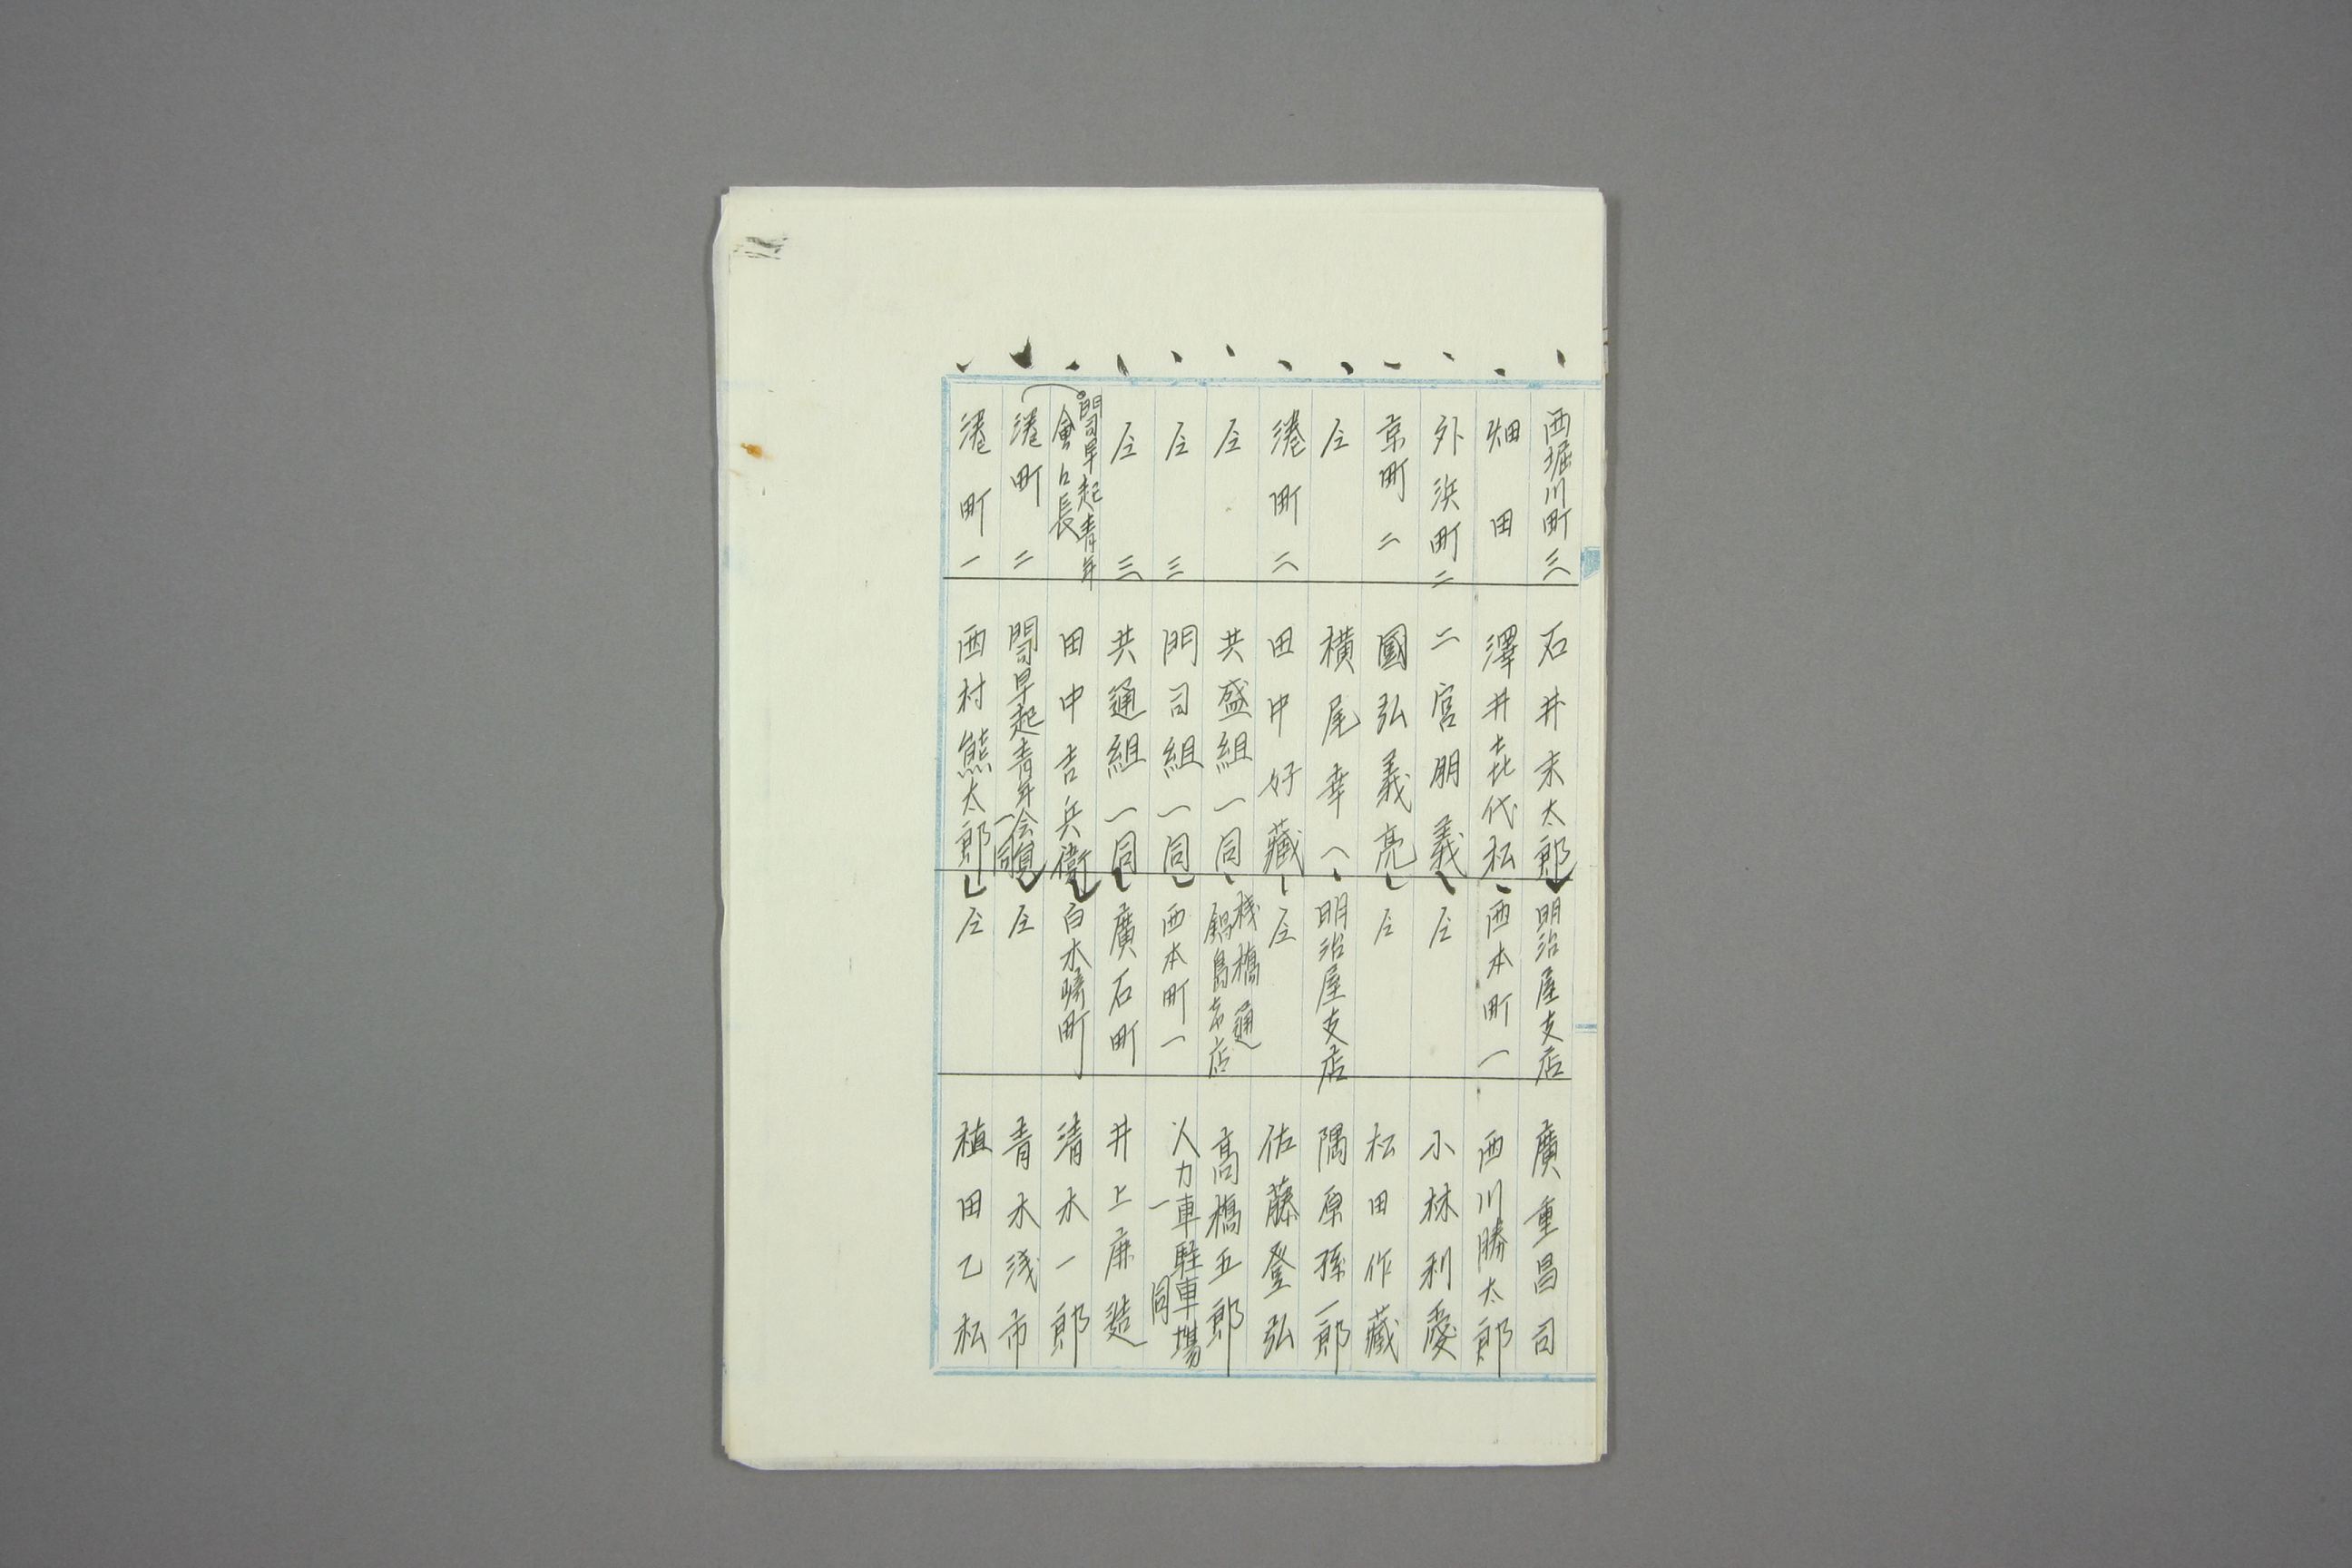 西堀川町三 石井末太郎 明治屋支店 廣重昌司
畑田 澤井㐂代松 西本町一 西川勝太郎
外浜町二 二宮朋義 仝 小林利愛
京町二 國弘義亮 仝 松田作藏
仝 横尾幸一 明治屋支店 隅原孫一郎
港町二 田中好藏 仝 佐藤登弘
仝 共盛組一同 桟橋通
鍋島支店 髙橋五郎
仝 三 門司組一同 西本町一 人力車駐車場
一同
仝 三 共通組一同 廣石町 井上廉造
門司早起青年
會々長 田中吉兵衛 白木崎町 清水一郎
港町二 門司早起青年会員
一同 仝 青木浅市
港町一 西村熊太郎 仝 植田乙松